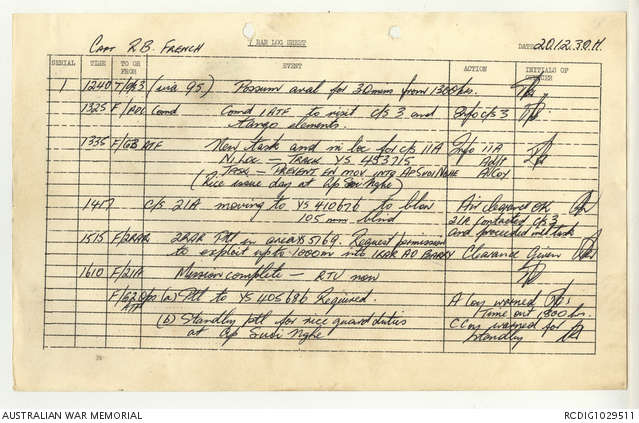 CAPT R.B. FRENCH
7 RAR LOG SHEET
DATE 20.12.30.H.
SERIAL TIME TO OR FROM EVENT ACTION INITIALS OF
1 1240 T/ (via 95). Possum avail for 30 mins from 1300 hrs.
1325 F/ADC Comd Comd 1 ATF to visit c/s 3 and Info c/s 3
tango elements.
1335 F/ ATF New task and ni loc for c/s 11A Info 11A
Ni Loc — TRACK YS 453715 Adjt
TASK — PREVENT EN MOV INTO AP SUOI NGHE A Coy
(Rice issue day at Ap Suoi Nghe)
1417 C/S 21A moving to YS 410676 to blow Air clearance OK
105 mm blind 21A contacted c/s 3
and proceeded on task
1515 F/2RAR 2RAR Ptl in area YS 5769. Request permission
to exploit up to 1000m into 1RAR AO Clearance Given
1610 F/21A Mission complete — RTU now
F/G2 Ops ATF (a) Ptl to YS 405686 Required. A Coy warned
Time out 1800 hrs.
(b) Standby ptl for rice guard duties C Coy warned for
at Ap Suoi Nghe standby
AUSTRALIAN WAR MEMORIAL
RCDIG1029511